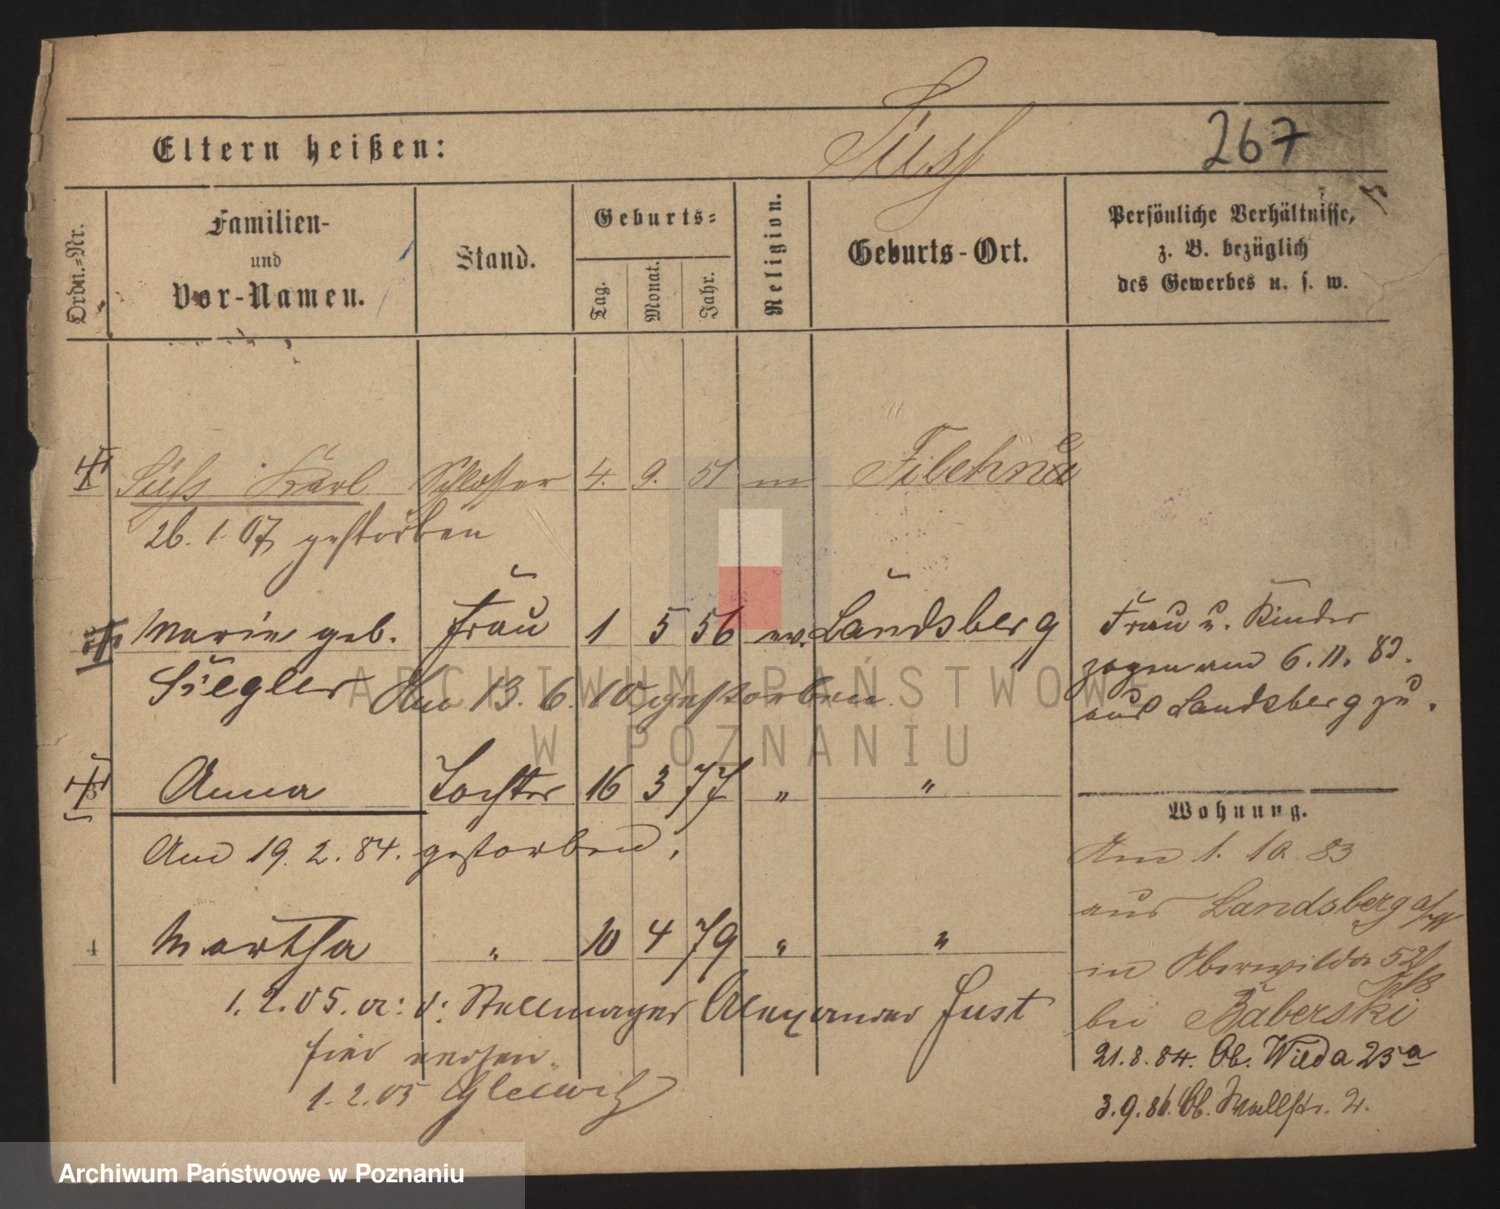 Süss
267
Eltern heißen:
Ordn.-Nr.
Familien-
und
Vor-Namen.
Stand.
Geburts-
Tag.
Monat.
Jahr.
Religion.
Geburts-Ort.
Persönliche Verhältnisse,
z. B. bezüglich
des Gewerbes u. s. w.
Süss Karl Schlosser 4. 9. 51 Filehne
26. 1. 07 gestorben
Marie geb. Frau 1 5 56 ev. Landsberg
Ziegler Am 13. 6. 10 gestorben
Frau u. Kinder
zogen am 6. 11. 83.
aus Landsberg zu.
Anna Tochter 16 3 77 " "
Am 19. 2. 84. gestorben.
4 Martha " 10 4 79 " "
1. 2. 05. a: d: Stellmacher Alexander Just
hier verh.
1. 2. 05 Gleiwitz
Wohnung.
Am 1. 10. 83
aus Landsberg a/W
in Oberwilda 52
bei Baberski
21. 8. 84. Ob. Wilda 25a
3. 9. 86. Ob. Wallstr. 2.
ARCHIWUM PAŃSTWOWE
W POZNANIU
Archiwum Państwowe w Poznaniu